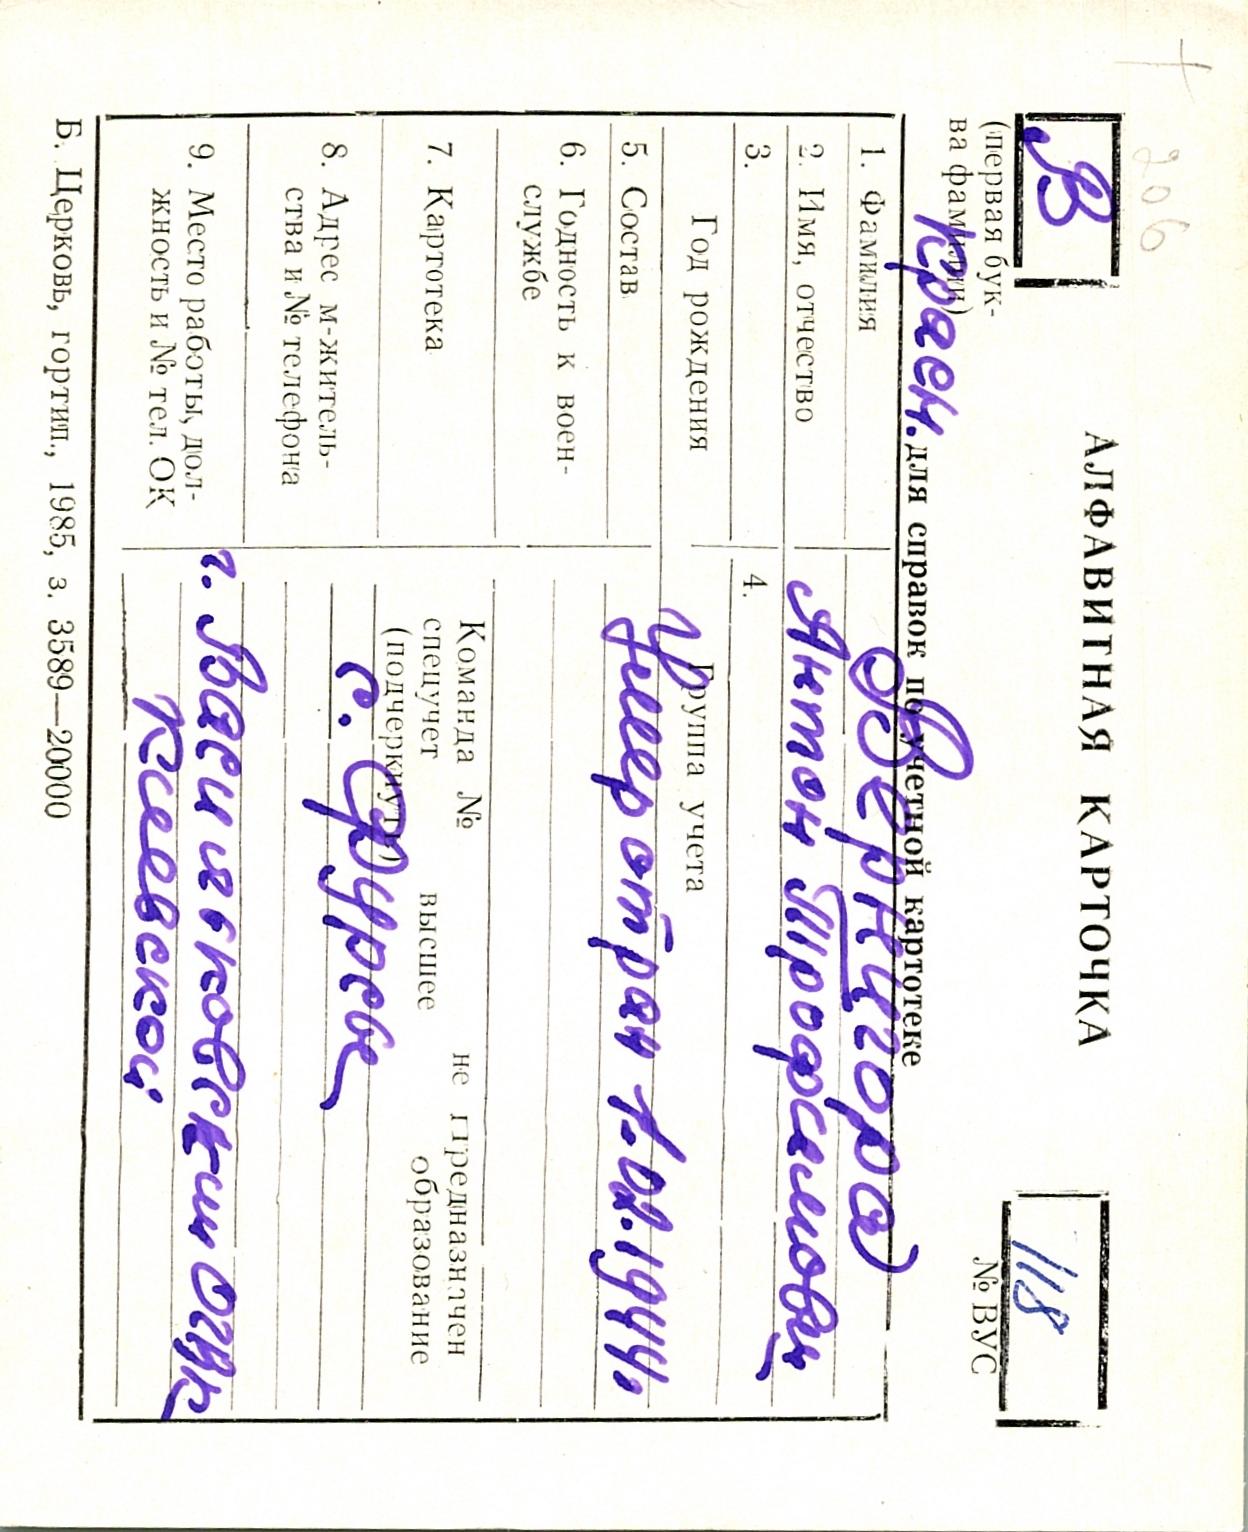 206
АЛФАВИТНАЯ КАРТОЧКА
В
118
(первая бук-
ва фамилии)
№ ВУС
Краен. для справок по учетной картотеке
1. Фамилия Вернигора
2. Имя, отчество Антон Трофимович
3. 4.
Год рождения Группа учета
5. Состав Умер от ран 1.02.1944.
6. Годность к воен-
службе
7. Картотека
Команда № не предназначен
спецучет высшее образование
(подчеркнуть)
8. Адрес м-житель-
ства и № телефона
с. Фурсы
9. Место работы, дол-
жность и № тел. ОК
г. Васильковским ОГВК
Киевской
Б. Церковь, гортип., 1985, з. 3589—20000